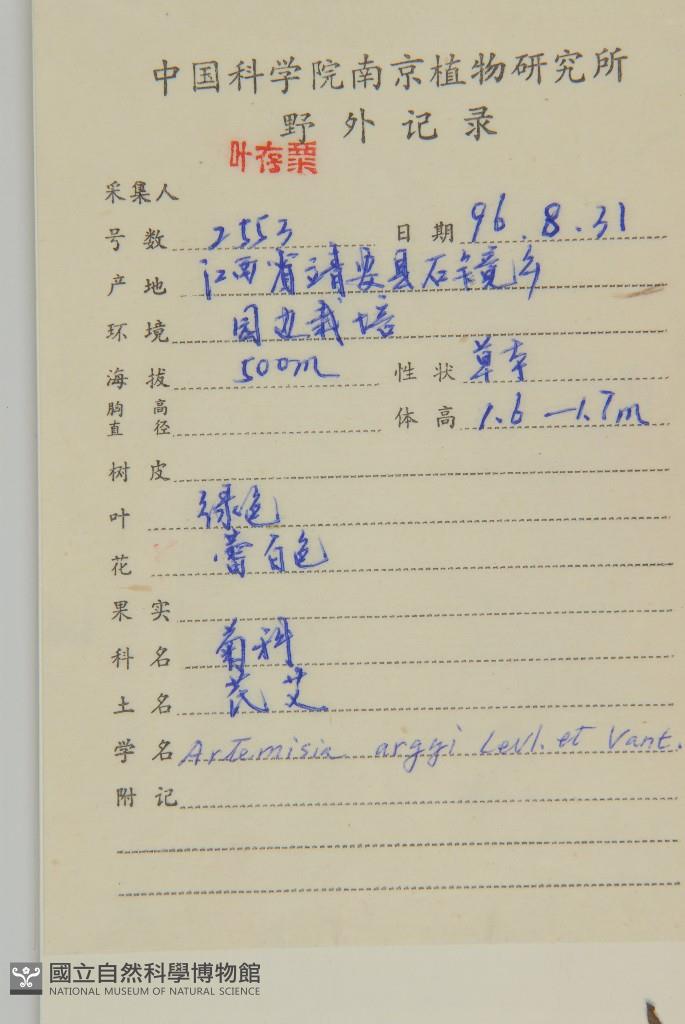 中国科学院南京植物研究所
野外记录
叶存粟
采集人
号数 2553 日期 96.8.31
产地 江西省靖安县石镜乡
环境 园边栽培
海拔 500m 性状 草本
胸高直径 体高 1.6—1.7m
树皮
叶 绿色
花 蕾白色
果实
科名 菊科
土名 茋艾
学名 Artemisia argyi Levl. et Vant.
附记
國立自然科學博物館
NATIONAL MUSEUM OF NATURAL SCIENCE